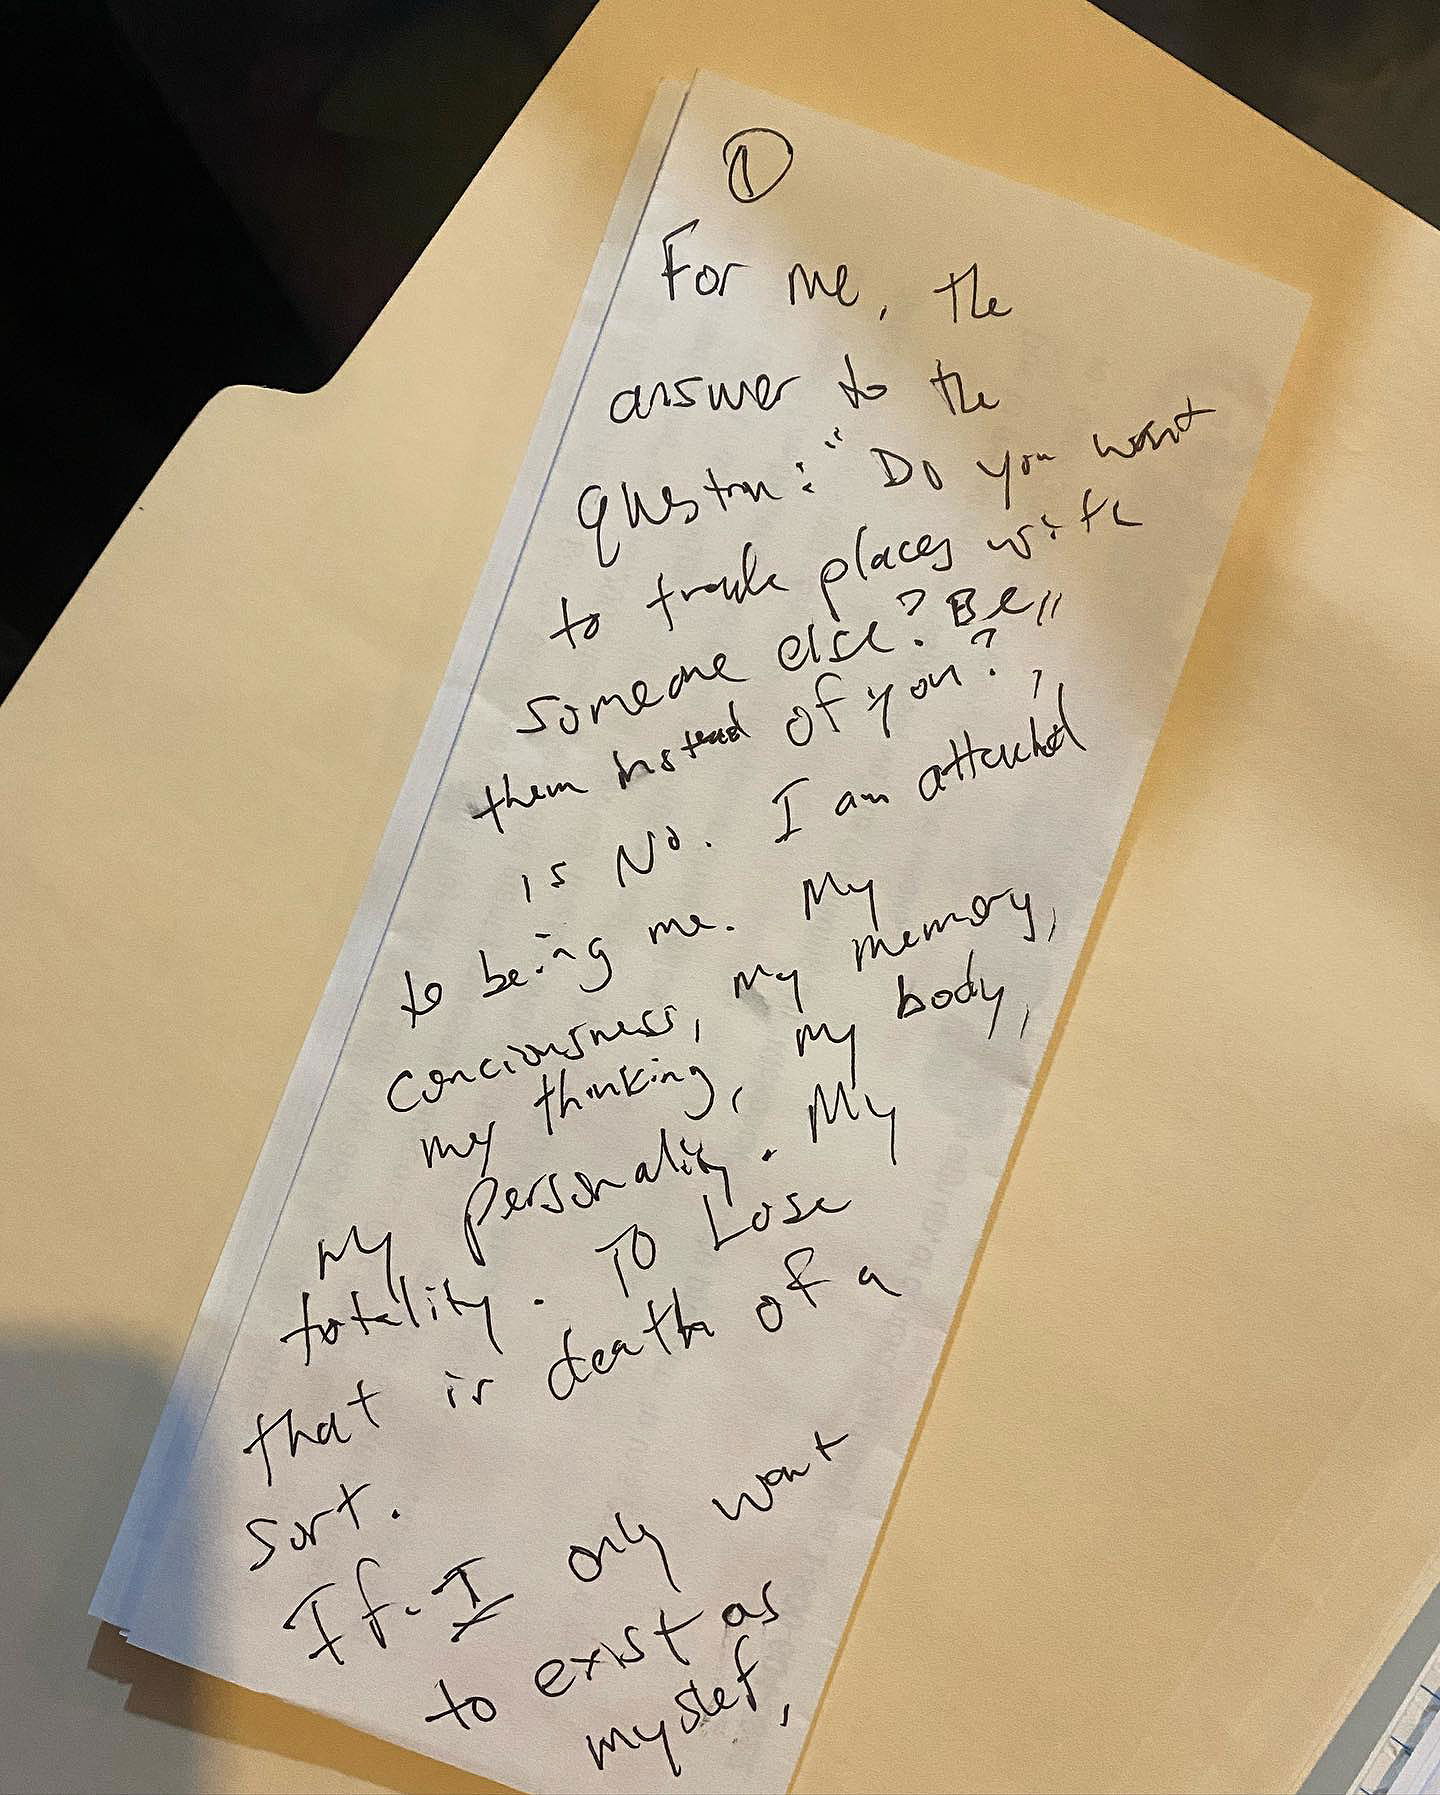 1
For me, the
answer to the
question: "Do you want
to trade places with
someone else? Be
them instead of you?",
is No. I am attached
to being me. My
conciousness, my memory,
my thinking, my body,
my personality. My
totality. To Lose
that is death of a
sort.
If I only want
to exist as
myslef,